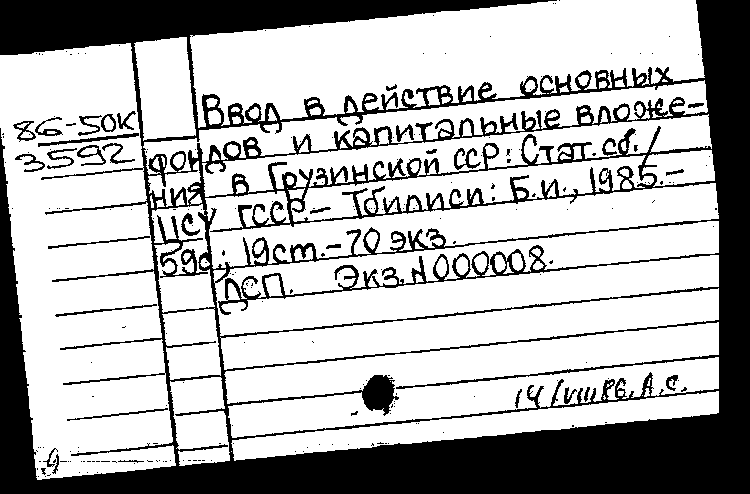 86-50К
3592
Ввод в действие основных
фондов и капитальные вложе-
ния в Грузинской ССР: Стат. сб. /
ЦСУ ГССР.- Тбилиси: Б.и., 1985.-
59с.; 19см.- 70 экз.
ДСП. Экз. N000008.
14/VIII86. А.С.